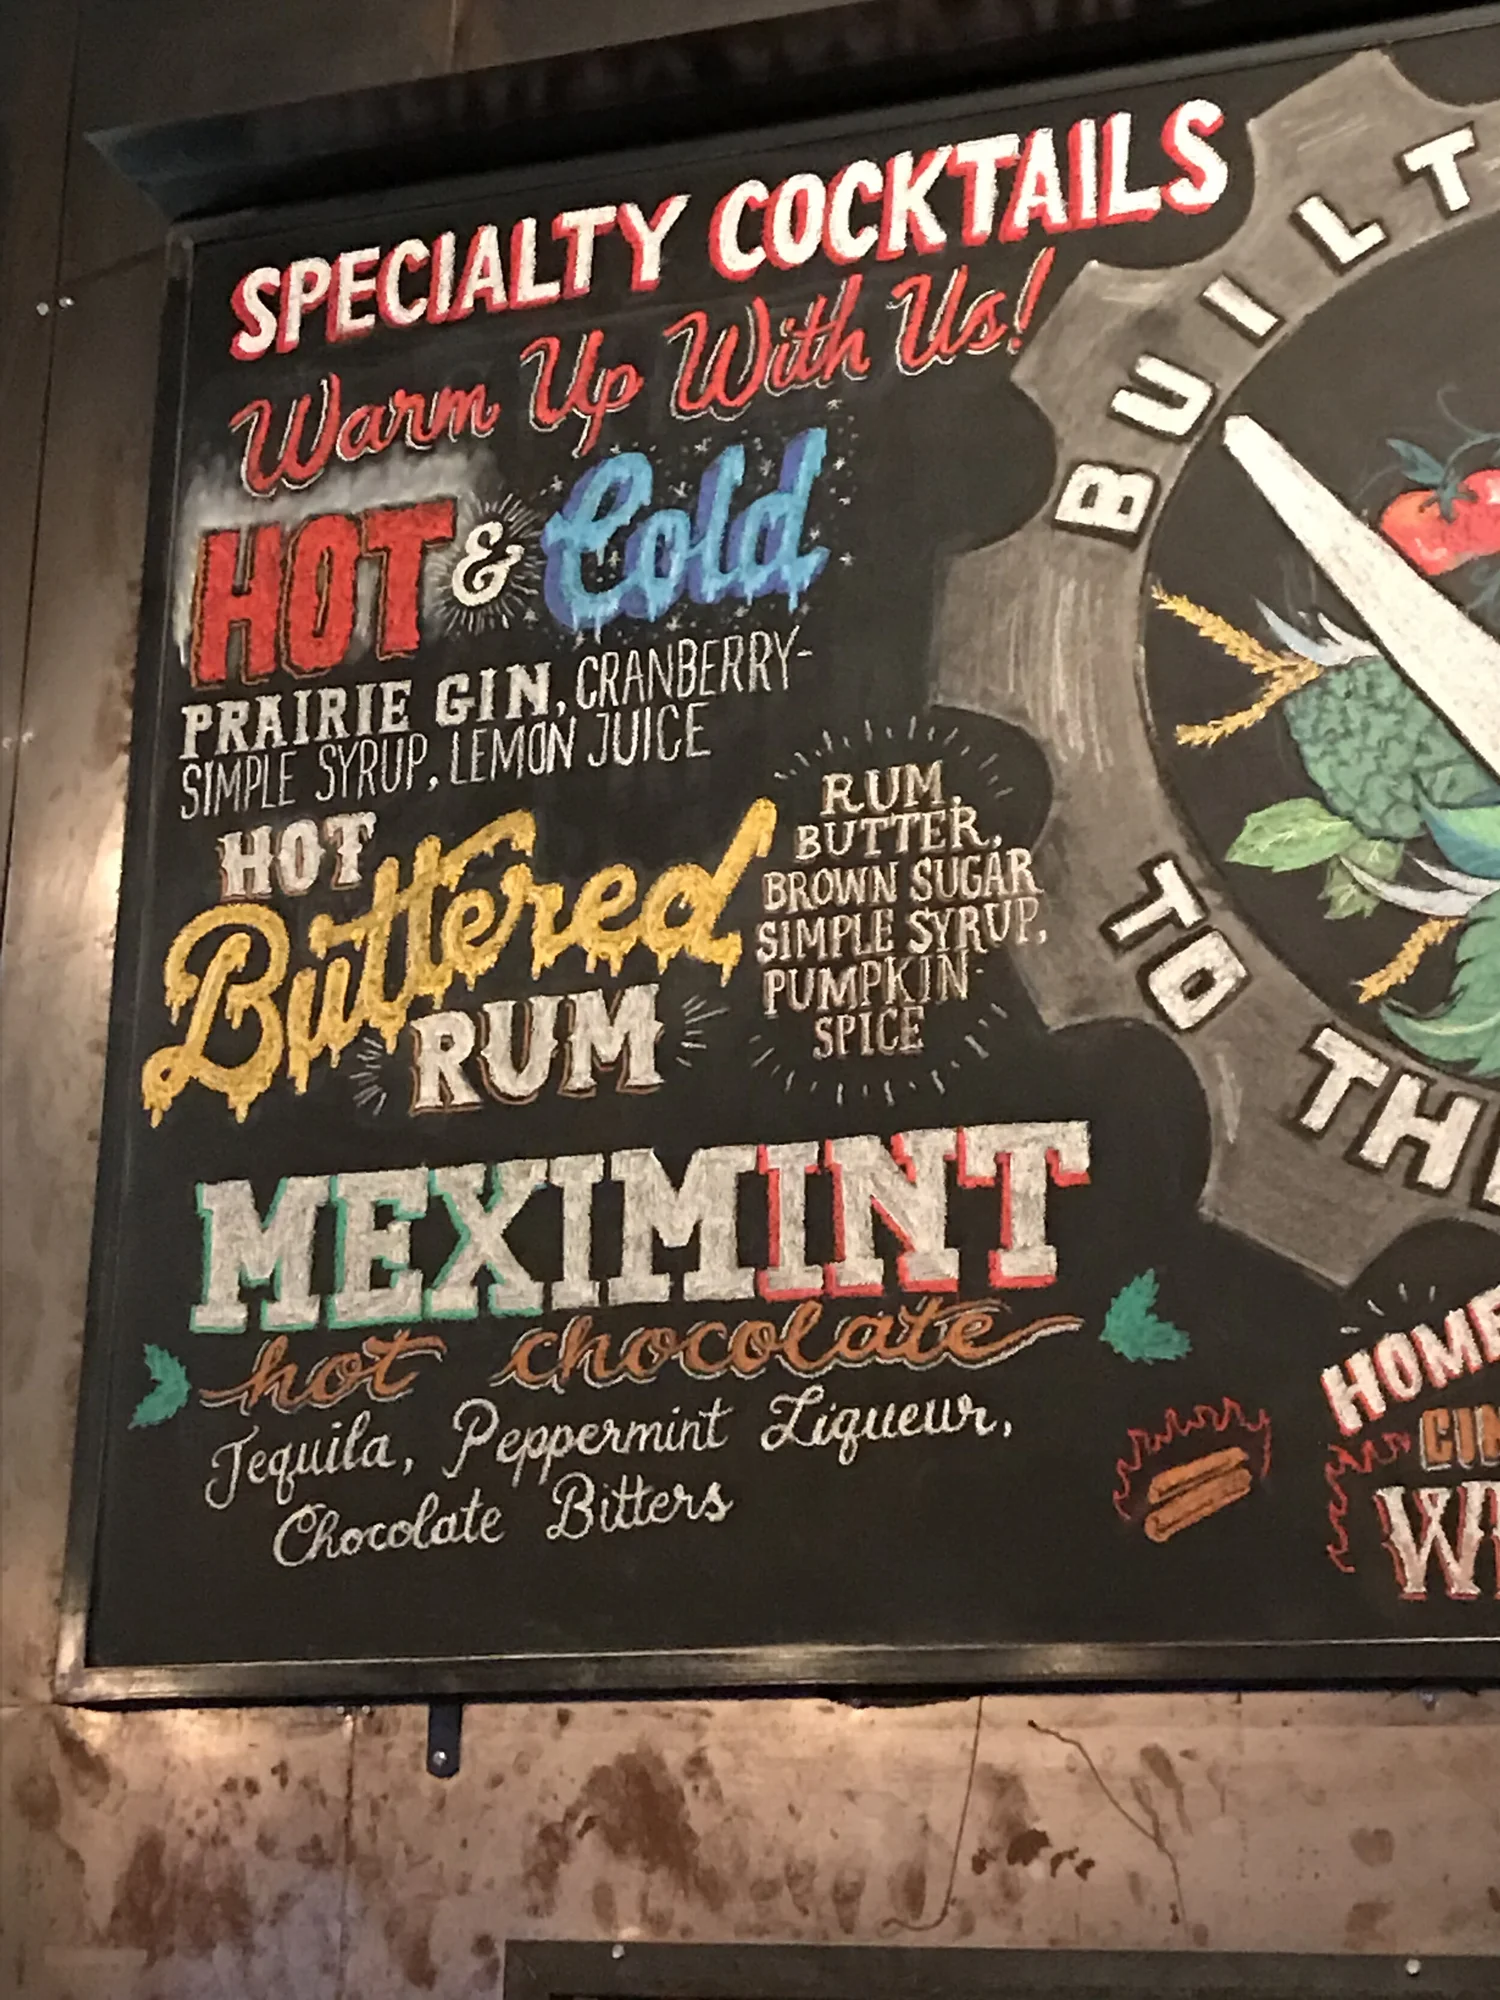 SPECIALTY COCKTAILS
Warm Up With Us!
HOT & Cold
PRAIRIE GIN, CRANBERRY-
SIMPLE SYRUP, LEMON JUICE
HOT
Buttered
RUM
RUM,
BUTTER,
BROWN SUGAR
SIMPLE SYRUP,
PUMPKIN-
SPICE
MEXIMINT
hot chocolate
Tequila, Peppermint Liqueur,
Chocolate Bitters
BUILT
TO TH
HOME
CIN
W